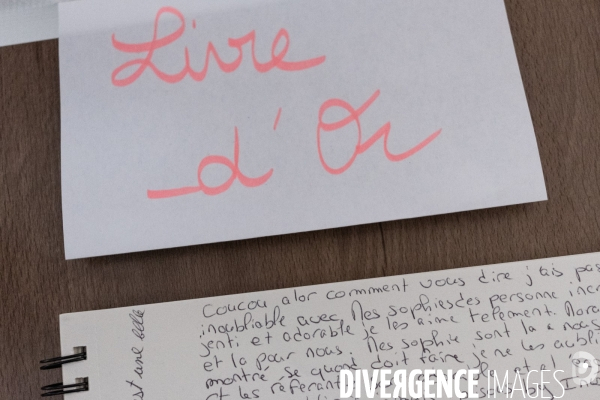 Livre
d'Or
Coucou alor comment vous dire j'ais pas
inoubliable avec Mes sophies des personne incr
jenti et adorable je les aime tellement. Mora
et la pour nous. Mes sophie sont la à nous
montré se quand doit faire je ne les oubli
et les référant
st une belle
DIVERGENCE IMAGES